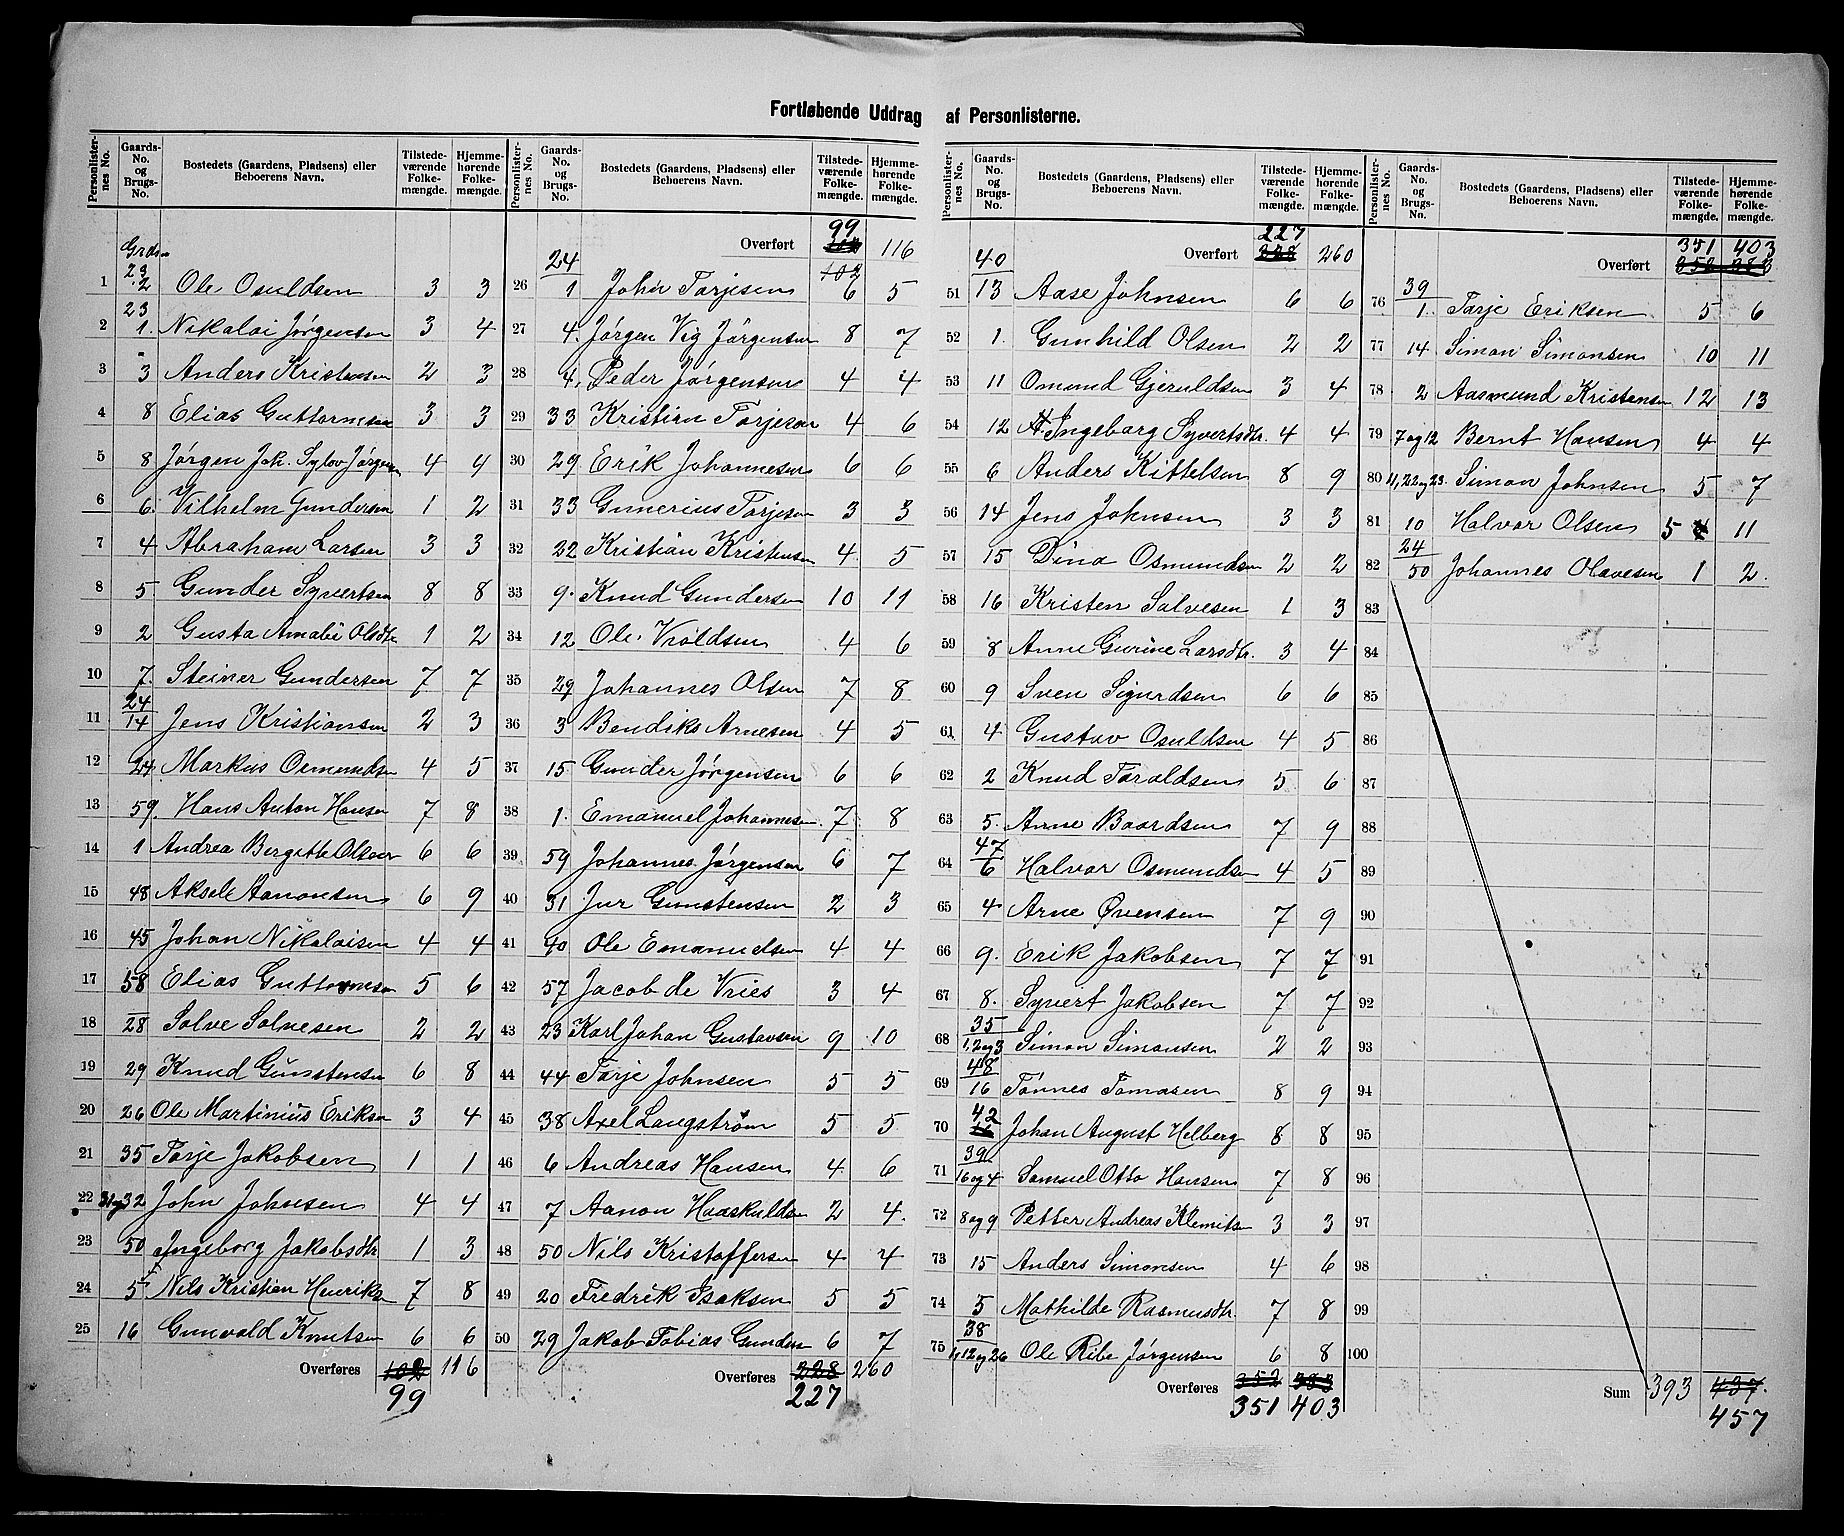 Fortløbende Uddrag af Personlisterne.
Personlisternes No. | Gaards-No. og Brugs-No. | Bostedets (Gaardens, Pladsens) eller Beboerens Navn. | Tilstedeværende Folkemængde. | Hjemmehørende Folkemængde.
1 | 23 2 | Ole Osuldsen | 3 | 3
2 | 23 1. | Nikolai Jörgensen | 3 | 4
3 | " 3 | Anders Kristensen | 2 | 3
4 | 8 | Elias Guttormsen | 3 | 3
5 | 8 | Jörgen Joh. Sylov Jörgensen | 4 | 4
6 | 6. | Vilhelm Gundersen | 1 | 2
7 | 4 | Abraham Larsen | 3 | 3
8 | 5 | Gunder Syvertsen | 8 | 8
9 | 2 | Gusta Amalie Olsdtr | 1 | 2
10 | 7. | Steiner Gundersen | 7 | 7
11 | 24/14 | Jens Kristiansen | 2 | 3
12 | 24 | Markus Osmundsen | 4 | 5
13 | 59. | Hans Anton Hansen | 7 | 8
14 | 1 | Andrea Bergitte Olsen | 6 | 6
15 | 48 | Aksel Aanonsen | 6 | 9
16 | 45 | Johan Nikolaisen | 4 | 4
17 | 58 | Elias Guttormsen | 5 | 6
18 | 28 | Solve Solvesen | 2 | 2
19 | 29 | Knud Gunstensen | 6 | 8
20 | 26 | Ole Martinius Eriksen | 3 | 4
21 | 35 | Tarje Jakobsen | 1 | 1
22 | 31 og 32 | John Johnsen | 4 | 4
23 | 50 | Ingeborg Jakobsdtr | 1 | 3
24 | 5 | Nils Kristian Henriksen | 7 | 8
25 | 16 | Gunvald Knutsen | 6 | 6
Overføres 102 116
99
Personlisternes No. | Gaards-No. og Brugs-No. | Bostedets (Gaardens, Pladsens) eller Beboerens Navn. | Tilstedeværende Folkemængde. | Hjemmehørende Folkemængde.
Overført 99 116
102
26 | 24/1 | John Tarjesen | 6 | 5
27 | 4. | Jörgen Vig Jörgensen | 8 | 7
28 | 4. | Peder Jörgensen | 4 | 4
29 | 33 | Kristian Tarjesen | 4 | 6
30 | 29 | Erik Johannesen | 6 | 6
31 | 33 | Gunerius Tarjesen | 3 | 3
32 | 22 | Kristian Kristensen | 4 | 5
33 | 9. | Knud Gundersen | 10 | 11
34 | 12 | Ole Vroldsen | 4 | 6
35 | 29 | Johannes Olsen | 7 | 8
36 | 3 | Bendiks Arnesen | 4 | 5
37 | 15 | Gunder Jörgensen | 6 | 6
38 | 1. | Emanuel Johannesen | 7 | 8
39 | 59 | Johannes Jörgensen | 6 | 7
40 | 31 | Jur Gunstensen | 2 | 3
41 | 40 | Ole Emanuelsen | 4 | 4
42 | 57 | Jacob de Vries | 3 | 4
43 | 23 | Karl Johan Gustavsen | 9 | 10
44 | 44 | Tarje Johnsen | 5 | 5
45 | 38 | Axel Langström | 5 | 5
46 | 6 | Andreas Hansen | 4 | 6
47 | 7 | Aanon Haaskuldsen | 2 | 4.
48 | 50 | Nils Kristoffersen | 4 | 4
49 | 20 | Fredrik Isaksen | 5 | 5
50 | 29 | Jakob Tobias Gundersen | 6 | 7
Overføres 228 260
227
Personlisternes No. | Gaards-No. og Brugs-No. | Bostedets (Gaardens, Pladsens) eller Beboerens Navn. | Tilstedeværende Folkemængde. | Hjemmehørende Folkemængde.
Overført 227 228 260
51 | 40/13 | Aase Johnsen | 6 | 6
52 | 1. | Gunhild Olsen | 2 | 2
53 | 11 | Omund Gjeruldsen | 3 | 4
54 | 12 | Ingeborg Syvertsdtr. | 4 | 4
55 | 6 | Anders Kittelsen | 8 | 9
56 | 14 | Jens Johnsen | 3 | 3
57 | 15 | Dina Osmundsen | 2 | 2
58 | 16 | Kristen Salvesen | 1 | 3
59 | 8 | Anne Gurine Larsdtr. | 3 | 4
60 | 9 | Sven Sigurdsen | 6 | 6
61 | 4 | Gustav Osuldsen | 4 | 5
62 | 2 | Knud Taraldsen | 5 | 6
63 | 5. | Anne Baardsen | 7 | 9
64 | 47/6 | Halvor Osmundsen | 4 | 5
65 | 4 | Arne Övensen | 7 | 9
66 | 9. | Erik Jakobsen | 7 | 7
67 | 8. | Syvert Jakobsen | 7 | 7
68 | 35/1, 2 og 3 | Simon Simonsen | 2 | 2
69 | 48/16 | Tönnes Tomasen | 8 | 9
70 | 42 | Johan August Helberg | 8 | 8
71 | 39/16 og 4 | Samuel Otto Hansen | 7 | 8
72 | 8 og 9 | Petter Andreas Klemitsen | 3 | 3
73 | 15 | Anders Simonsen | 4 | 6
74 | 5 | Mathilde Rasmusdtr. | 7 | 8
75 | 38/11, 12 og 26 | Ole Ribe Jörgensen | 6 | 8
Overføres 352 383
351 403
Personlisternes No. | Gaards-No. og Brugs-No. | Bostedets (Gaardens, Pladsens) eller Beboerens Navn. | Tilstedeværende Folkemængde. | Hjemmehørende Folkemængde.
351 403
Overført 352 383
76 | 39/1. | Tarje Eriksen | 5 | 6
77 | 14 | Simon Simonsen | 10 | 11
78 | 2 | Aasmund Kristensen | 12 | 13
79 | 7 og 12 | Bernt Hansen | 4 | 4
80 | 11, 22 og 23. | Simon Johnsen | 5 | 7
81 | 10 | Halvor Olsen | 5 4 | 11
82 | 24/50 | Johannes Olavesen | 1 | 2.
83
84
85
86
87
88
89
90
91
92
93
94
95
96
97
98
99
100
Sum 393 437.
457